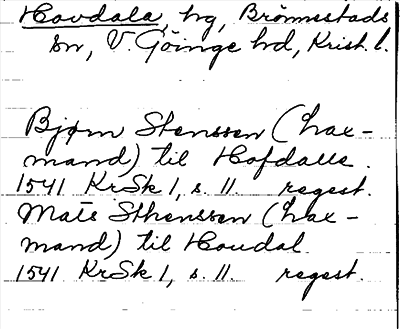 Hovdala, hg, Brönnestads
sn, V. Göinge hd, Krist. l.
Bjørn Stenssen (hax-
mand) til Hofdalle.
1541 KrSk 1, s. 11. regest.
Mats Sthenssen (hax-
mand) til Houdal.
1541 KrSk 1, s. 11. regest.